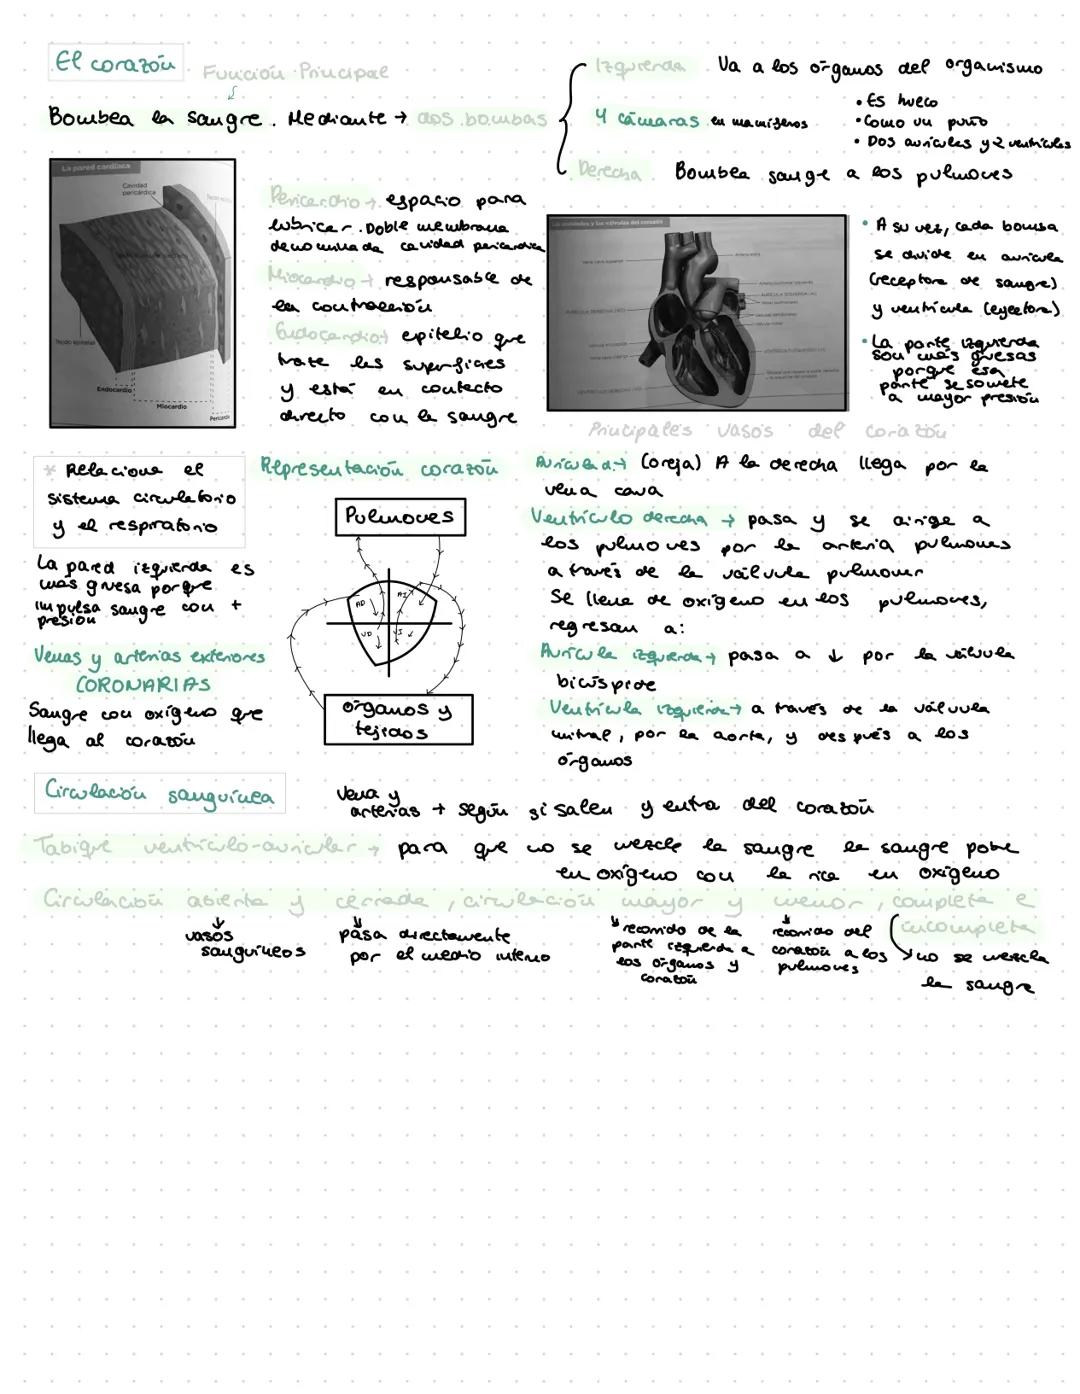 El corazón
Función Principal
Bombea la sangre. Mediante → dos bombas
Izquierda Va a los órganos del organismo
4 cámaras en mamíferos
• Es hueco
• Como un puño
• Dos aurículas y 2 ventrículos
Derecha Bombea sangre a los pulmones
La pared cardíaca
Cavidad pericárdica
Tejido epitelial
Endocardio
Miocardio
Pericardio
Pericardio → espacio para
lubricar. Doble membrana
denominada cavidad pericardica
Miocardio → responsable de
la contracción
Endocardio → epitelio que
trate las superficies
y está en contacto
directo con la sangre
• A su vez, cada bomba
se divide en aurícula
(receptora de sangre)
y ventrícula (eyectora)
• La parte izquierda
son más gruesas
porque esa
parte se somete
a mayor presión
* Relaciona el
sistema circulatorio
y el respiratorio
La pared izquierda es
más gruesa porque
impulsa sangre con +
presión
Venas y arterias exteriores
CORONARIAS
Sangre con oxígeno que
llega al corazón
Representación corazón
Pulmones
AD
AI
VD
VI
órganos y
tejidos
Principales vasos del corazón
Aurícula → (oreja) A la derecha llega por la
vena cava
Ventrículo derecha → pasa y se dirige a
los pulmones por la arteria pulmones
a través de la válvula pulmonar
Se llena de oxígeno en los pulmones,
regresan a:
Aurícula izquierda → pasa a ↓ por la válvula
bicúspide
Ventrícula izquierda → a través de la válvula
mitral, por la aorta, y después a los
órganos
Circulación sanguínea
Vena y
arterias → según si salen y entra del corazón
Tabique ventrículo-auricular → para que no se mezcle la sangre la sangre pobre
en oxígeno con la rica en oxígeno
Circulación abierta y cerrada, circulación mayor y menor, completa e
incompleta
vasos
sanguíneos
pasa directamente
por el medio interno
recorrido de la
parte izquierda a
los órganos y
corazón
recorrido del
corazón a los
pulmones
no se mezcla
la sangre